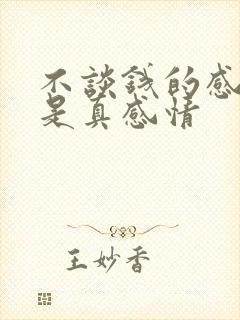 不談錢的感
是真感情
王妙香